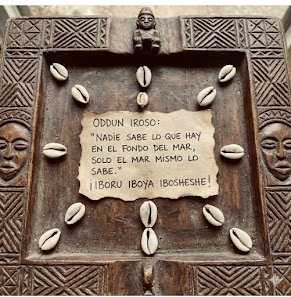 ODDUN IROSO:
"NADIE SABE LO QUE HAY
EN EL FONDO DEL MAR,
SOLO EL MAR MISMO LO
SABE."
¡IBORU IBOYA IBOSHESHE!